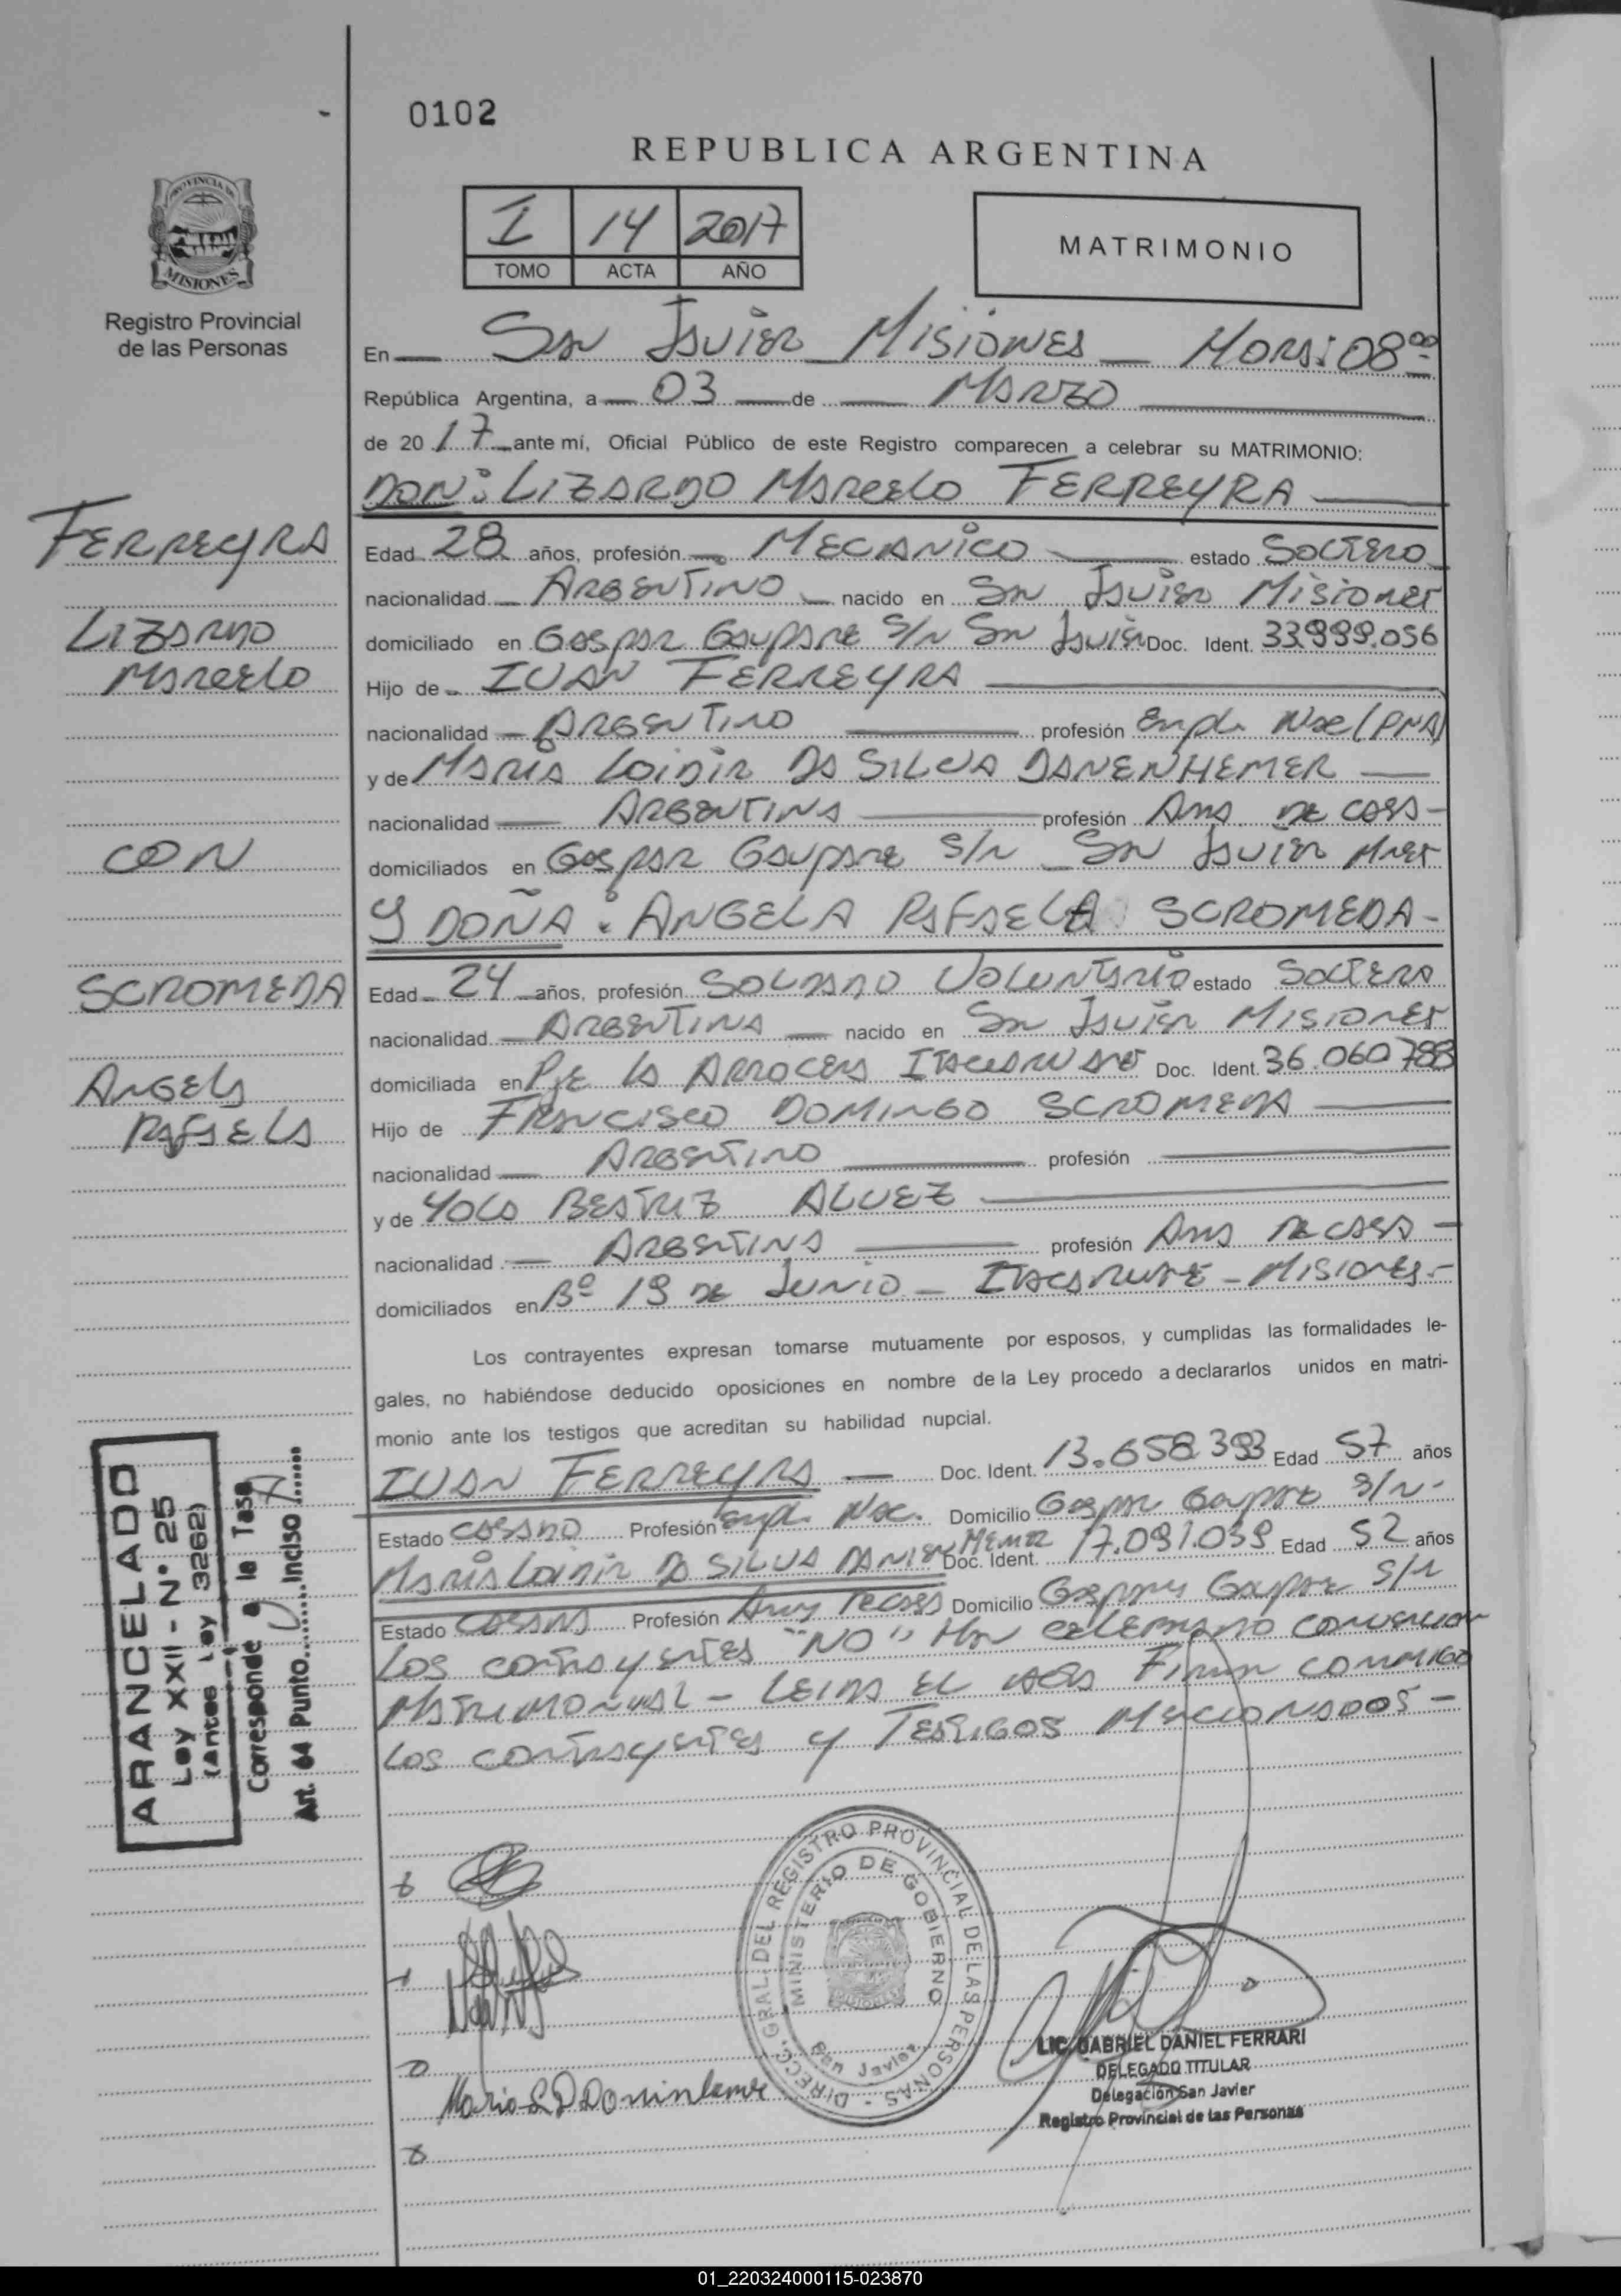 0102
REPUBLICA ARGENTINA
I 14 2017
TOMO ACTA AÑO
MATRIMONIO
PROVINCIA DE
MISIONES
Registro Provincial
de las Personas
En San Javier Misiones Hora: 08⁰⁰
República Argentina, a 03 de Marzo
de 2017 ante mí, Oficial Público de este Registro comparecen a celebrar su MATRIMONIO:
DON: LIZARDO MARCELO FERREYRA
Edad 28 años, profesión MECANICO estado SOLTERO
nacionalidad ARGENTINO nacido en San Javier Misiones
domiciliado en Gaspar Gaupare S/N San Javier Doc. Ident. 33.999.056
Hijo de IVAN FERREYRA
nacionalidad ARGENTINO profesión Empl. Nac (PNA)
y de MARIA LOIDIR DA SILVA DANENHEMER
nacionalidad ARGENTINA profesión Ama de casa-
domiciliados en Gaspar Gaupare S/N San Javier Mnes
Y DOÑA: ANGELA RAFAELA SCROMEDA-
Edad 24 años, profesión SOLDADO VOLUNTARIO estado SOLTERA
nacionalidad ARGENTINA nacido en San Javier Misiones
domiciliada en Pje la ARROCERA ITACARUARE Doc. Ident. 36.060788
Hijo de FRANCISCO DOMINGO SCROMEDA
nacionalidad ARGENTINO profesión
y de YOLA BEATRIZ ALVEZ
nacionalidad ARGENTINA profesión Ama de casa -
domiciliados en Bº 19 de Junio - ITACARUARE - MISIONES.-
Los contrayentes expresan tomarse mutuamente por esposos, y cumplidas las formalidades le-
gales, no habiéndose deducido oposiciones en nombre de la Ley procedo a declararlos unidos en matri-
monio ante los testigos que acreditan su habilidad nupcial.
IVAN FERREYRA Doc. Ident. 13.658.393 Edad 57 años
Estado CASADO Profesión Empl. Nac. Domicilio Gaspar Gaupare S/N-
MARIA LOIDIR DA SILVA DANENHEMER Doc. Ident. 17.091.039 Edad 52 años
Estado CASADA Profesión Ama de casa Domicilio Gaspar Gaupare S/N
Los contrayentes "NO" Han celebrado convencion
MATRIMONIAL - LEIDA EL ACTA Firman conmigo
Los contrayentes y TESTIGOS Mencionados -
FERREYRA
LIZARDO
MARCELO
CON
SCROMEDA
ANGELA
RAFAELA
ARANCELADO
Ley XXII - N° 25
(Antes Ley 3262)
Corresponde a la Tasa
Art. 64 Punto Inciso
DIRECC. GRAL. DEL REGISTRO PROVINCIAL DE LAS PERSONAS -
MINISTERIO DE GOBIERNO
San Javier
MISIONES
LIC. GABRIEL DANIEL FERRARI
DELEGADO TITULAR
Delegación San Javier
Registro Provincial de las Personas
01_220324000115-023870